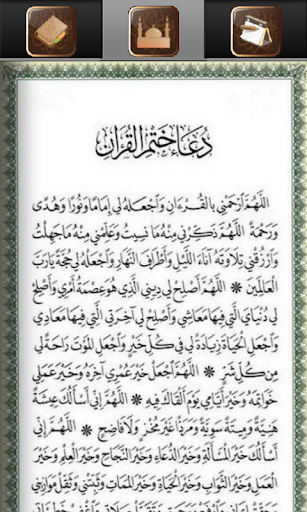 دُعَاءُ خَتْمِ الْقُرْآنِ
اللَّهُمَّ ارْحَمْنِي بِالْقُرْءَانِ وَاجْعَلهُ لِي إِمَامًا وَنُورًا وَهُدًى
وَرَحْمَةً اللَّهُمَّ ذَكِّرْنِي مِنْهُ مَا نَسِيتُ وَعَلِّمْنِي مِنْهُ مَا جَهِلْتُ
وَارْزُقْنِي تِلَاوَتَهُ آنَاءَ اللَّيْلِ وَأَطْرَافَ النَّهَارِ وَاجْعَلْهُ لِي حُجَّةً يَارَبَّ
الْعَالَمِينَ * اللَّهُمَّ أَصْلِحْ لِي دِينِي الَّذِي هُوَ عِصْمَةُ أَمْرِي وَأَصْلِحْ
لِي دُنْيَايَ الَّتِي فِيهَا مَعَاشِي وَأَصْلِحْ لِي آخِرَتِي الَّتِي فِيهَا مَعَادِي
وَاجْعَلِ الْحَيَاةَ زِيَادَةً لِي فِي كُلِّ خَيْرٍ وَاجْعَلِ الْمَوْتَ رَاحَةً لِي
مِنْ كُلِّ شَرٍّ * اللَّهُمَّ اجْعَلْ خَيْرَ عُمْرِي آخِرَهُ وَخَيْرَ عَمَلِي
خَوَاتِمَهُ وَخَيْرَ أَيَّامِي يَوْمَ أَلْقَاكَ فِيهِ * اللَّهُمَّ إِنِّي أَسْأَلُكَ عِيشَةً
هَنِيَّةً وَمِيتَةً سَوِيَّةً وَمَرَدًّا غَيْرَ مُخْزٍ وَلَا فَاضِحٍ * اللَّهُمَّ إِنِّي
أَسْأَلُكَ خَيْرَ الْمَسْأَلَةِ وَخَيْرَ الدُّعَاءِ وَخَيْرَ النَّجَاحِ وَخَيْرَ الْعِلْمِ وَخَيْرَ
الْعَمَلِ وَخَيْرَ الثَّوَابِ وَخَيْرَ الْحَيَاةِ وَخَيْرَ الْمَمَاتِ وَثَبِّتْنِي وَثَقِّلْ مَوَازِينِي